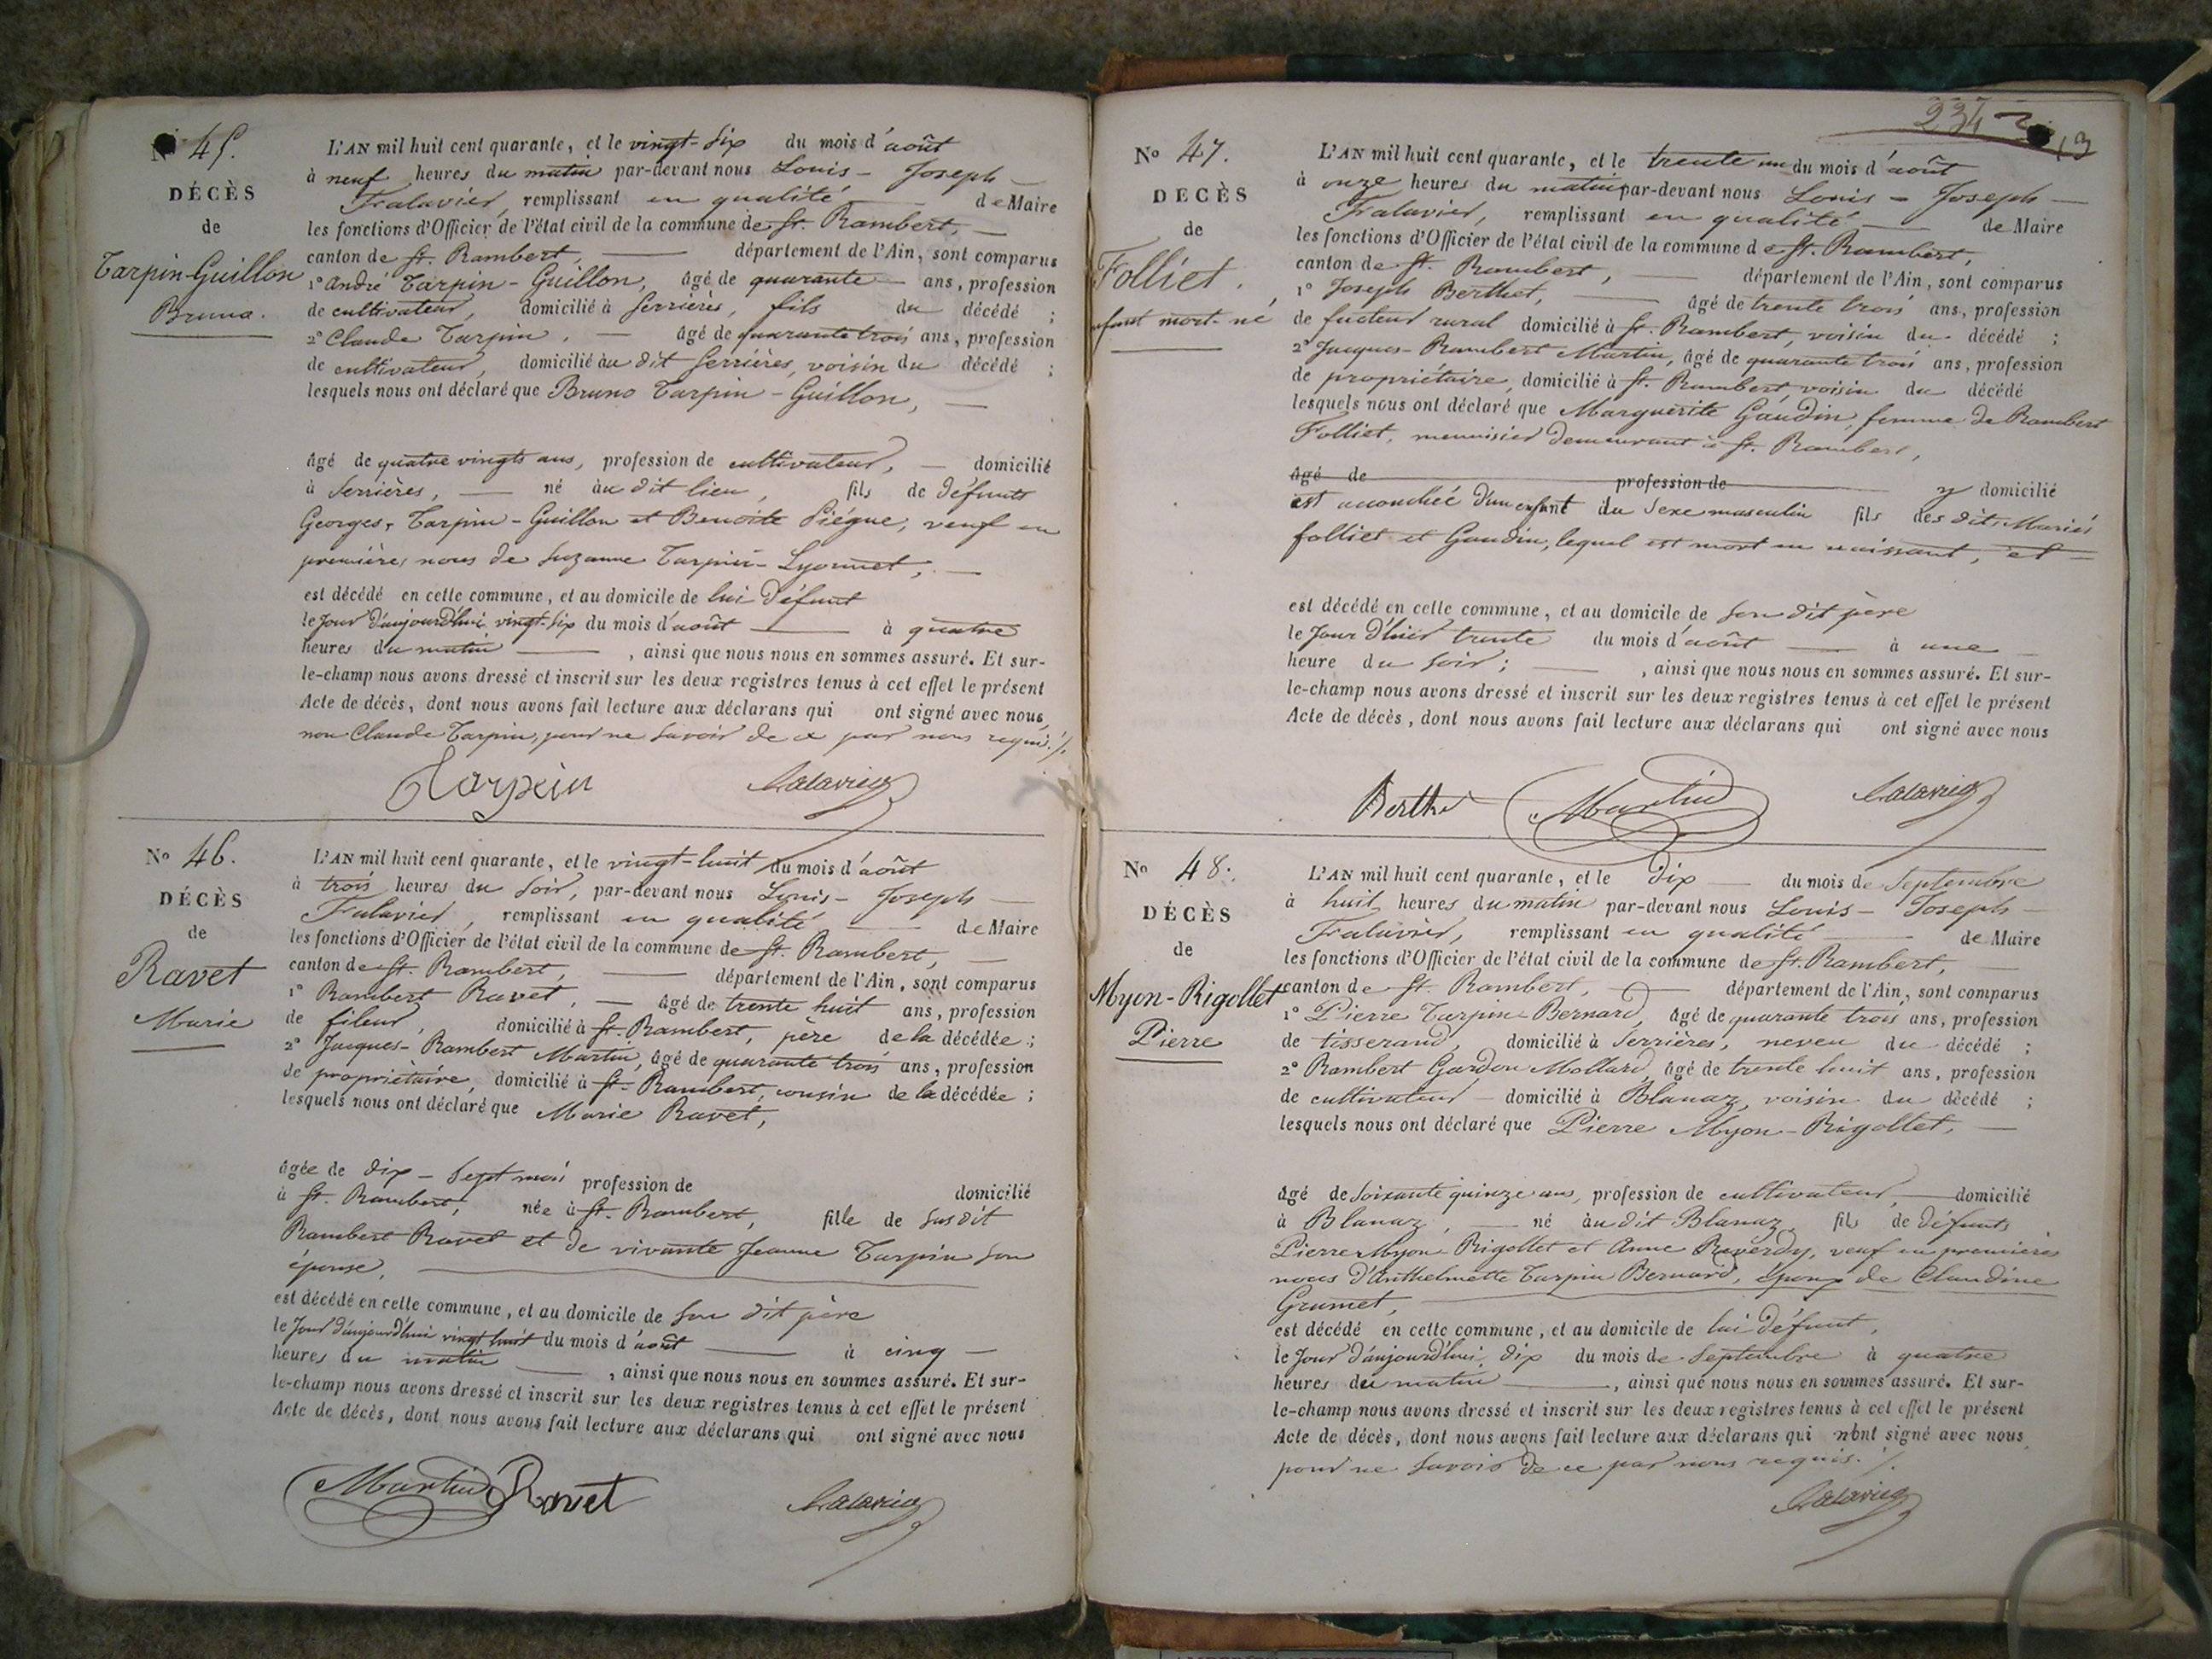 No 45.
DÉCÈS
de
Tarpin-Guillon
Bruno.
L'AN mil huit cent quarante, et le vingt-six du mois d'août
à neuf heures du matin par-devant nous Louis-Joseph
Falavier, remplissant en qualité de Maire
les fonctions d'Officier de l'état civil de la commune de St. Rambert,
canton de St. Rambert, département de l'Ain, sont comparus
1° André Tarpin-Guillon, âgé de quarante ans, profession
de cultivateur, domicilié à Serrières, fils du décédé ;
2° Claude Tarpin, âgé de quarante trois ans, profession
de cultivateur, domicilié au dit Serrières, voisin du décédé ;
lesquels nous ont déclaré que Bruno Tarpin-Guillon,
âgé de quatre vingts ans, profession de cultivateur, domicilié
à Serrières, né au dit lieu, fils de défunts
Georges Tarpin-Guillon et Benoite Piégue, veuf en
premières noces de Suzanne Tarpin-Lyonnet,
est décédé en cette commune, et au domicile de lui défunt
le jour d'aujourd'hui vingt-six du mois d'août à quatre
heures du matin, ainsi que nous nous en sommes assuré. Et sur-
le-champ nous avons dressé et inscrit sur les deux registres tenus à cet effet le présent
Acte de décès, dont nous avons fait lecture aux déclarans qui ont signé avec nous,
non Claude Tarpin, pour ne savoir de ce par nous requis./.
Tarpin Falavier
No 46.
DÉCÈS
de
Ravet
Marie
L'AN mil huit cent quarante, et le vingt-huit du mois d'août
à trois heures du soir, par-devant nous Louis-Joseph
Falavier, remplissant en qualité de Maire
les fonctions d'Officier de l'état civil de la commune de St. Rambert,
canton de St. Rambert, département de l'Ain, sont comparus
1° Rambert Ravet, âgé de trente huit ans, profession
de fileur, domicilié à St. Rambert, père de la décédée ;
2° Jacques-Rambert Martin, âgé de quarante trois ans, profession
de propriétaire, domicilié à St. Rambert, cousin de la décédée ;
lesquels nous ont déclaré que Marie Ravet,
âgée de dix-sept mois profession de domicilié
à St. Rambert, née à St. Rambert, fille de susdit
Rambert Ravet et de vivante Jeanne Tarpin son
épouse,
est décédé en cette commune, et au domicile de son dit père
le jour d'aujourd'hui vingt huit du mois d'août à cinq
heures du matin, ainsi que nous nous en sommes assuré. Et sur-
le-champ nous avons dressé et inscrit sur les deux registres tenus à cet effet le présent
Acte de décès, dont nous avons fait lecture aux déclarans qui ont signé avec nous
Martin Ravet Falavier
234
13
No 47.
DECÈS
de
Folliet.
enfant mort-né
L'AN mil huit cent quarante, et le trente un du mois d'août
à onze heures du matin par-devant nous Louis-Joseph
Falavier, remplissant en qualité de Maire
les fonctions d'Officier de l'état civil de la commune de St. Rambert,
canton de St. Rambert, département de l'Ain, sont comparus
1° Joseph Berthet, âgé de trente trois ans, profession
de facteur rural domicilié à St. Rambert, voisin du décédé ;
2° Jacques-Rambert Martin, âgé de quarante trois ans, profession
de propriétaire, domicilié à St. Rambert voisin du décédé
lesquels nous ont déclaré que Marguerite Gaudin, femme de Rambert
Folliet, menuisier demeurant à St. Rambert,
âgé de profession de y domicilié
est accouchée d'un enfant du sexe masculin fils des dits Mariés
folliet et Gaudin, lequel est mort en naissant, et
est décédé en cette commune, et au domicile de son dit père
le jour d'hier trente du mois d'août à une
heure du soir ; , ainsi que nous nous en sommes assuré. Et sur-
le-champ nous avons dressé et inscrit sur les deux registres tenus à cet effet le présent
Acte de décès, dont nous avons fait lecture aux déclarans qui ont signé avec nous
Berthet Martin Falavier
No 48.
DÉCÈS
de
Myon-Rigollet
Pierre
L'AN mil huit cent quarante, et le dix du mois de Septembre
à huit heures du matin par-devant nous Louis-Joseph
Falavier, remplissant en qualité de Maire
les fonctions d'Officier de l'état civil de la commune de St. Rambert,
canton de St. Rambert, département de l'Ain, sont comparus
1° Pierre Tarpin-Bernard, âgé de quarante trois ans, profession
de tisserand, domicilié à Serrières, neveu du décédé ;
2° Rambert Gardon Mollard, âgé de trente huit ans, profession
de cultivateur domicilié à Blanaz, voisin du décédé ;
lesquels nous ont déclaré que Pierre Myon-Rigollet,
âgé de soixante quinze ans, profession de cultivateur, domicilié
à Blanaz, né au dit Blanaz, fils de défunts
Pierre Myon-Rigollet et Anne Reverdy, veuf en premières
noces d'Anthelmette Tarpin Bernard, époux de Claudine
Grumet,
est décédé en cette commune, et au domicile de lui défunt,
le jour d'aujourd'hui, dix du mois de Septembre à quatre
heures du matin, ainsi que nous nous en sommes assuré. Et sur-
le-champ nous avons dressé et inscrit sur les deux registres tenus à cet effet le présent
Acte de décès, dont nous avons fait lecture aux déclarans qui n'ont signé avec nous,
pour ne savoir de ce par nous requis./.
Falavier